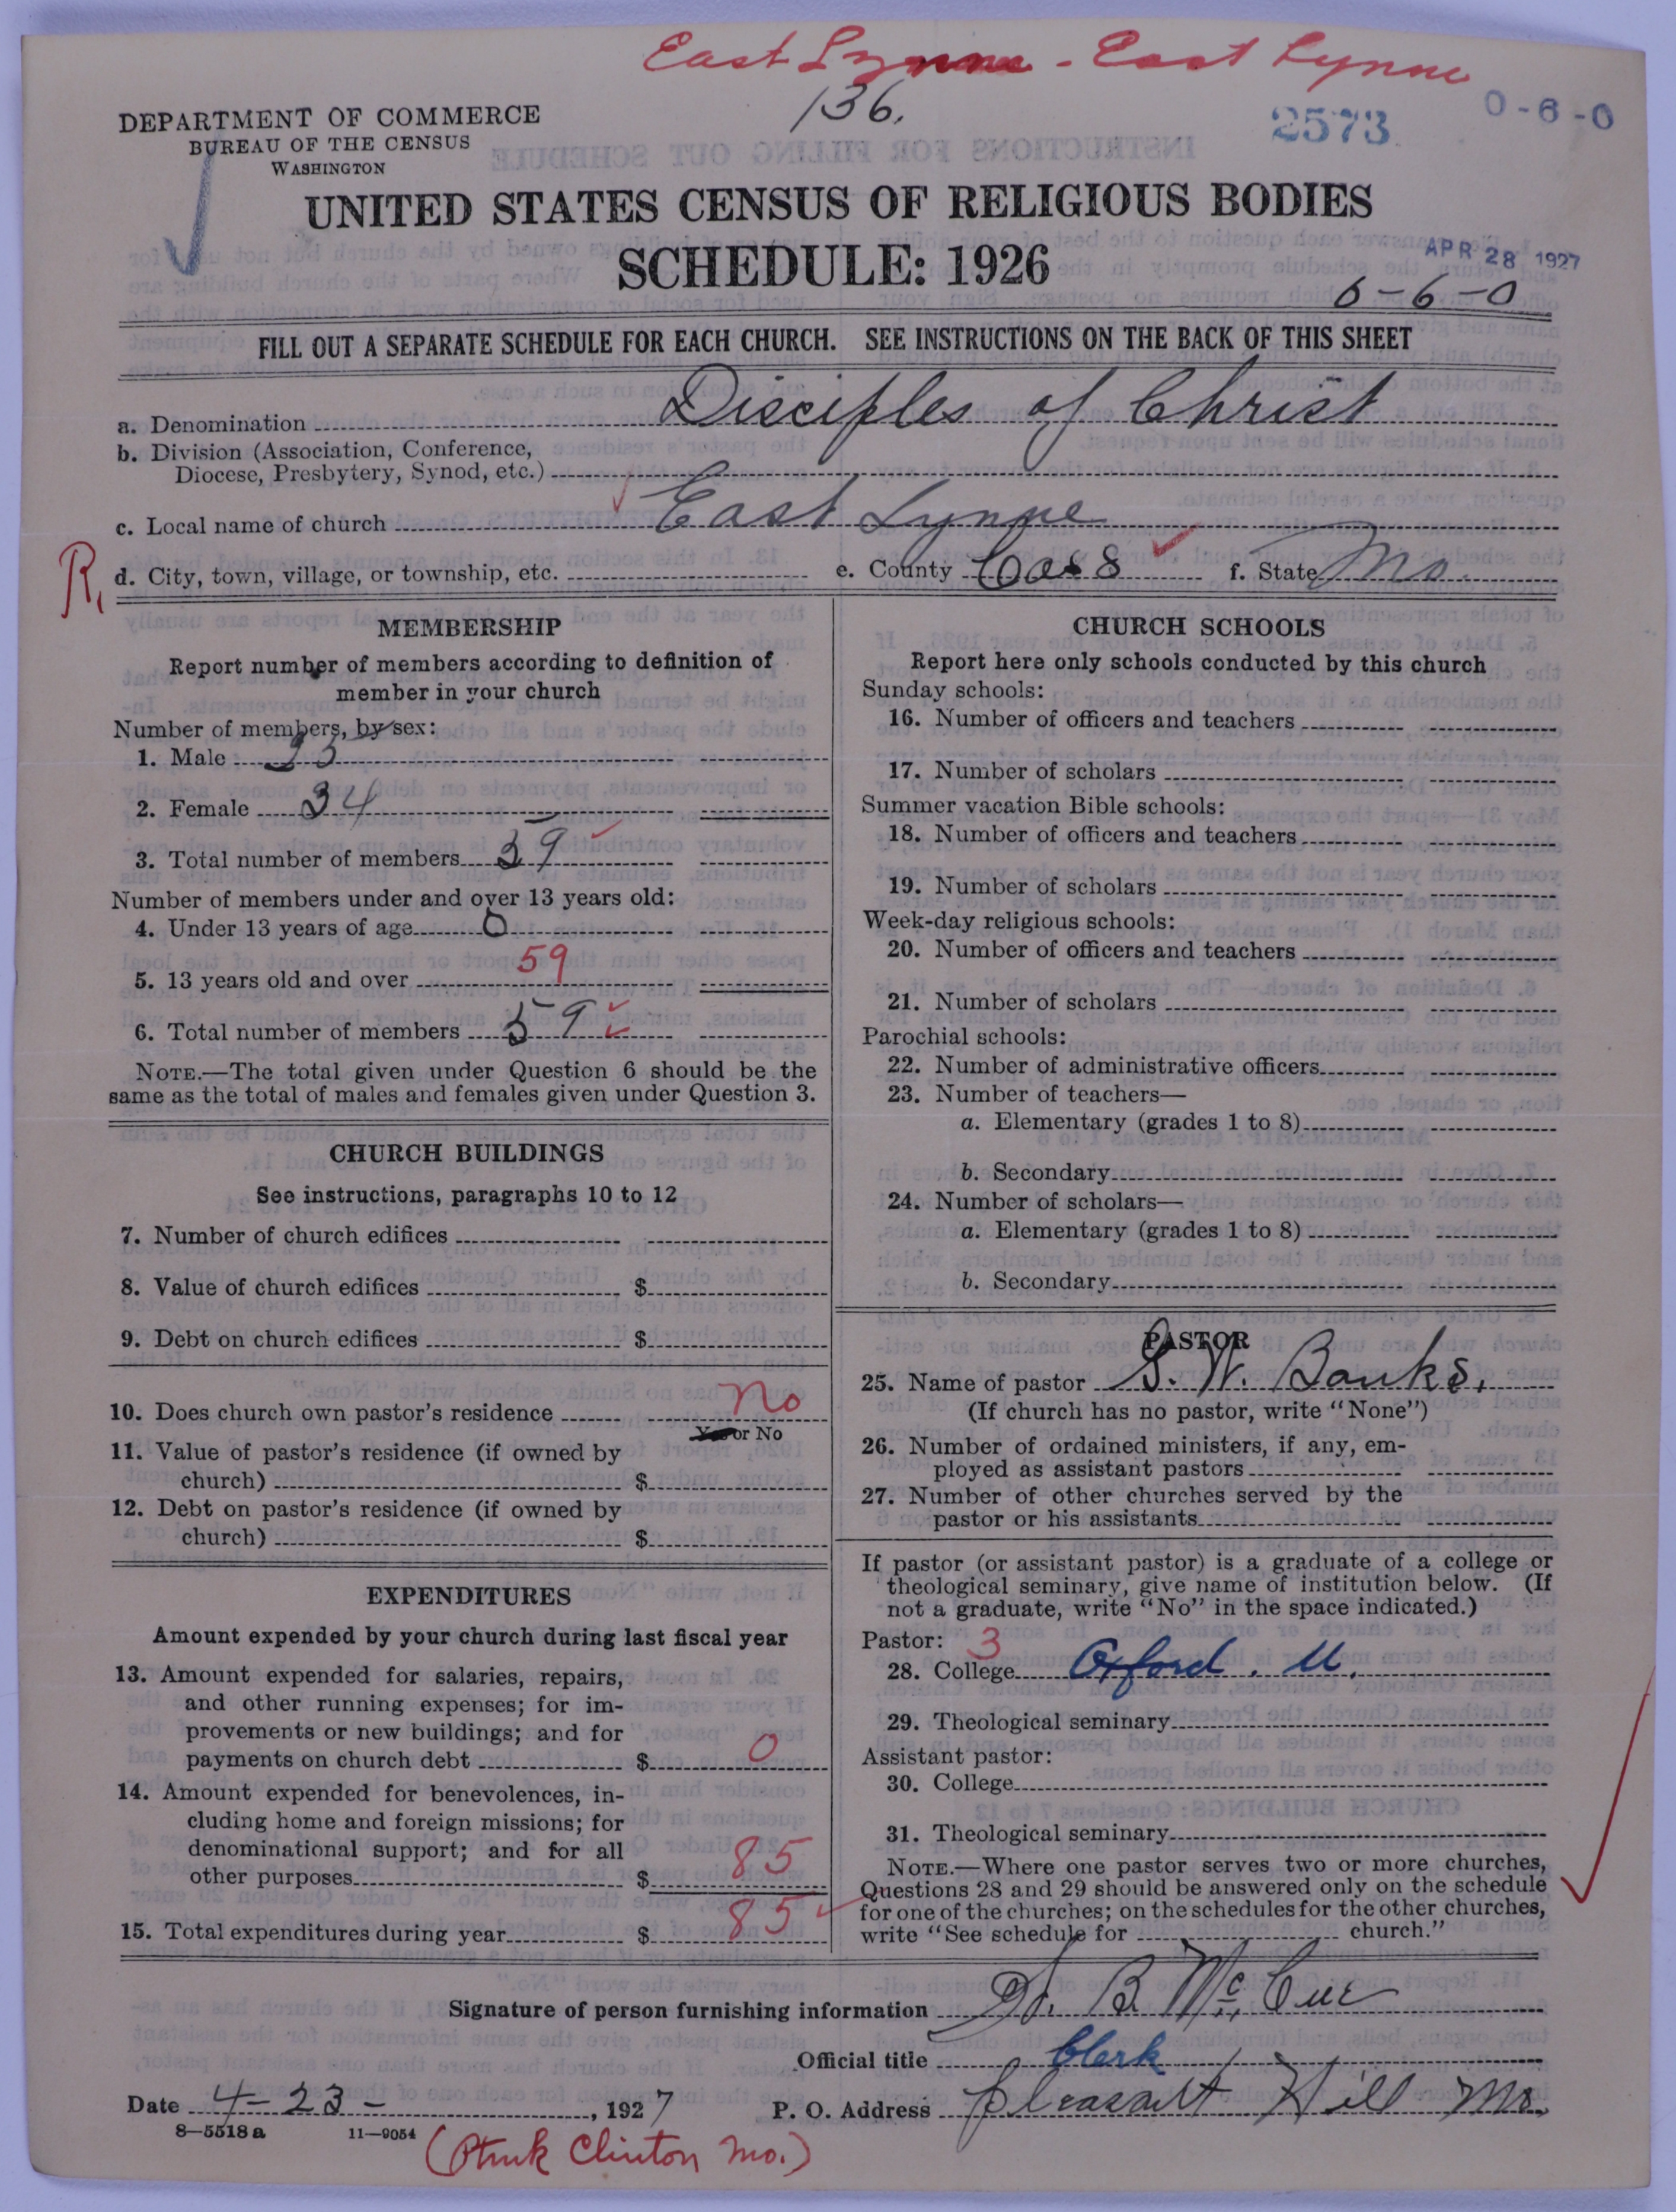 East Lynne - East Lynne
136.
2573
0-6-0
DEPARTMENT OF COMMERCE
BUREAU OF THE CENSUS
WASHINGTON
UNITED STATES CENSUS OF RELIGIOUS BODIES
SCHEDULE: 1926
APR 28 1927
6-6-0
FILL OUT A SEPARATE SCHEDULE FOR EACH CHURCH. SEE INSTRUCTIONS ON THE BACK OF THIS SHEET
a. Denomination Disciples of Christ
b. Division (Association, Conference,
Diocese, Presbytery, Synod, etc.)
c. Local name of church East Lynne
R.
d. City, town, village, or township, etc. e. County Cass f. State Mo.
MEMBERSHIP
Report number of members according to definition of
member in your church
Number of members, by sex:
1. Male
2. Female 34
3. Total number of members 59
Number of members under and over 13 years old:
4. Under 13 years of age 0
5. 13 years old and over 59
6. Total number of members 59
NOTE.—The total given under Question 6 should be the
same as the total of males and females given under Question 3.
CHURCH BUILDINGS
See instructions, paragraphs 10 to 12
7. Number of church edifices
8. Value of church edifices $
9. Debt on church edifices $
10. Does church own pastor's residence No
Yes or No
11. Value of pastor's residence (if owned by
church) $
12. Debt on pastor's residence (if owned by
church) $
EXPENDITURES
Amount expended by your church during last fiscal year
13. Amount expended for salaries, repairs,
and other running expenses; for im-
provements or new buildings; and for
payments on church debt $ 0
14. Amount expended for benevolences, in-
cluding home and foreign missions; for
denominational support; and for all
other purposes $ 85
15. Total expenditures during year $ 85
CHURCH SCHOOLS
Report here only schools conducted by this church
Sunday schools:
16. Number of officers and teachers
17. Number of scholars
Summer vacation Bible schools:
18. Number of officers and teachers
19. Number of scholars
Week-day religious schools:
20. Number of officers and teachers
21. Number of scholars
Parochial schools:
22. Number of administrative officers
23. Number of teachers—
a. Elementary (grades 1 to 8)
b. Secondary
24. Number of scholars—
a. Elementary (grades 1 to 8)
b. Secondary
PASTOR
25. Name of pastor G. W. Banks.
(If church has no pastor, write "None")
26. Number of ordained ministers, if any, em-
ployed as assistant pastors
27. Number of other churches served by the
pastor or his assistants
If pastor (or assistant pastor) is a graduate of a college or
theological seminary, give name of institution below. (If
not a graduate, write "No" in the space indicated.)
Pastor: 3
28. College Oxford. U.
29. Theological seminary
Assistant pastor:
30. College
31. Theological seminary
NOTE.—Where one pastor serves two or more churches,
Questions 28 and 29 should be answered only on the schedule
for one of the churches; on the schedules for the other churches,
write "See schedule for church."
Signature of person furnishing information B. McCue
Official title Clerk
Date 4-23-, 1927 P. O. Address Pleasant Hill Mo.
8—5518a 11—9054
(Ptmk Clinton Mo.)